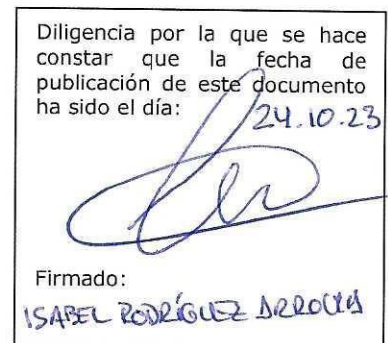 Diligencia por la que se hace
constar que la fecha de
publicación de este documento
ha sido el día:
24.10.23
Firmado:
ISABEL RODRÍGUEZ